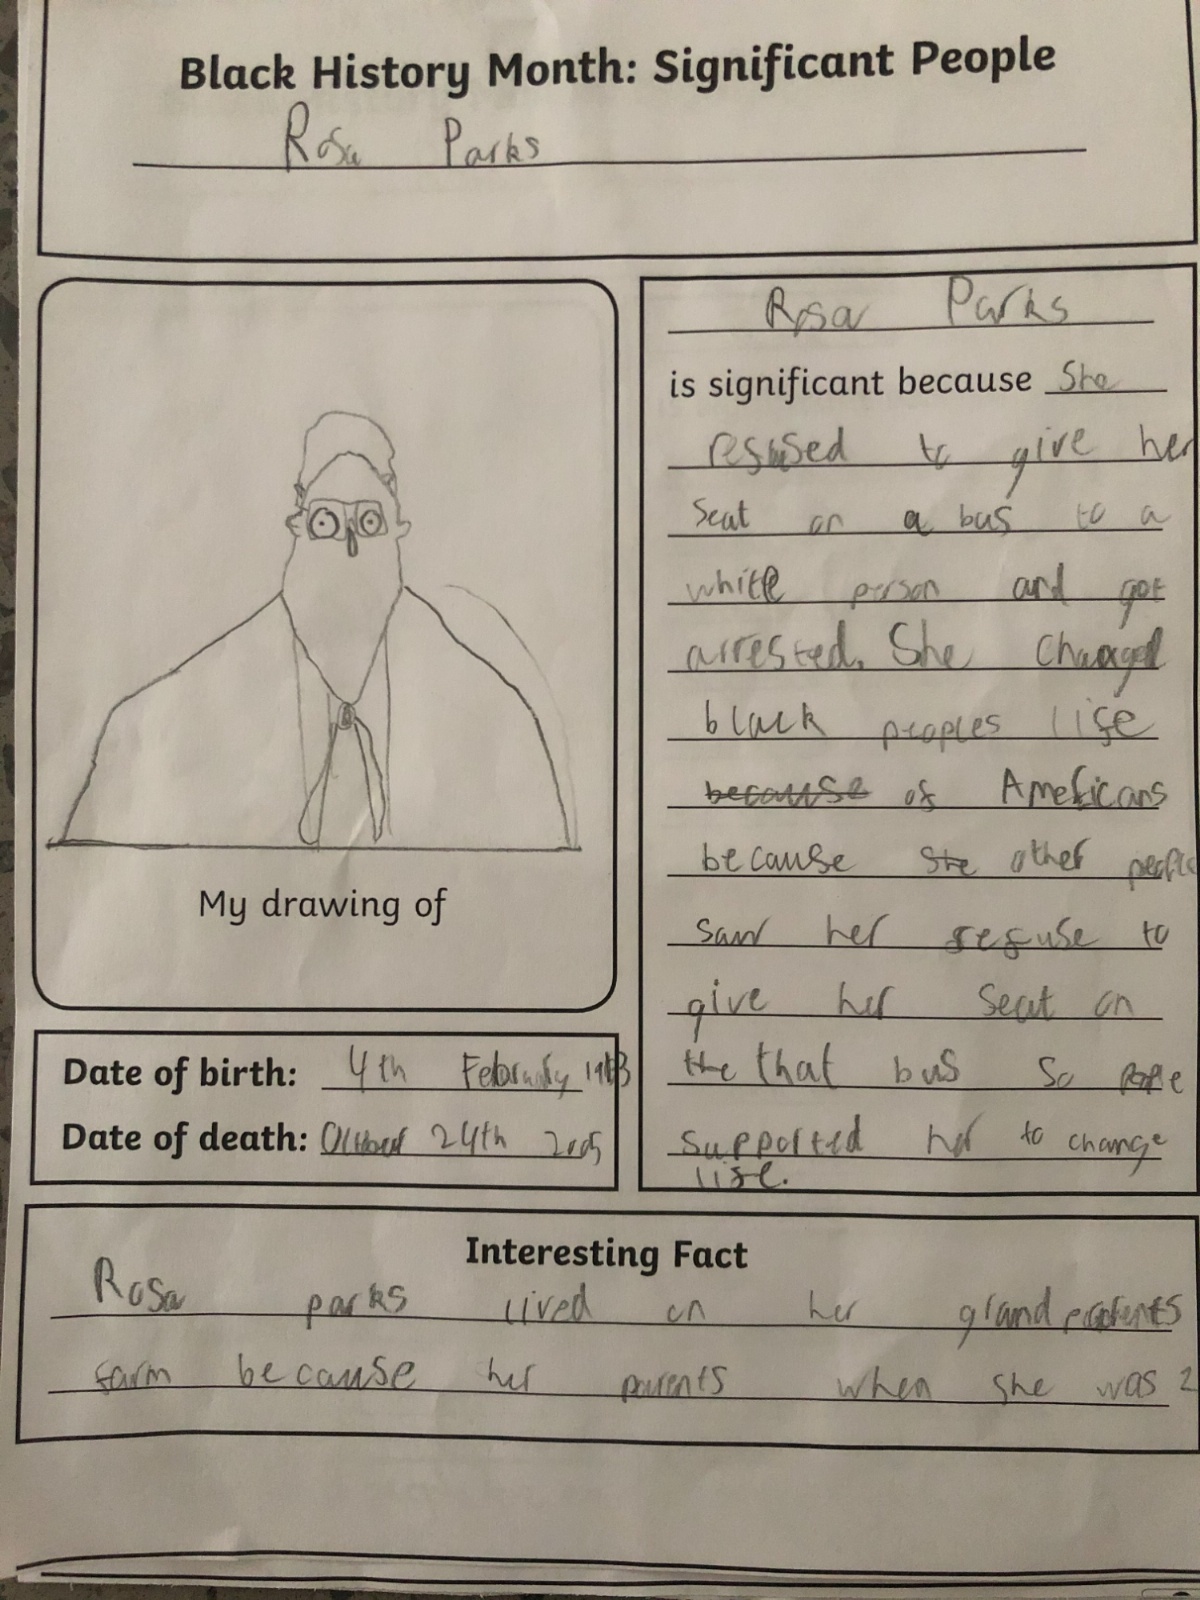 Black History Month: Significant People
Rosa Parks
Rosa Parks
is significant because She
refused to give her
Seat on a bus to a
white person and got
arrested. She changed
black peoples life
because of Americans
because She other people
saw her refuse to
give her Seat on
the that bus so people
supported her to change
life.
My drawing of
Date of birth: 4th February
Date of death: 24th 2005
Interesting Fact
Rosa parks lived on her grandparents
farm because her parents when she was 2